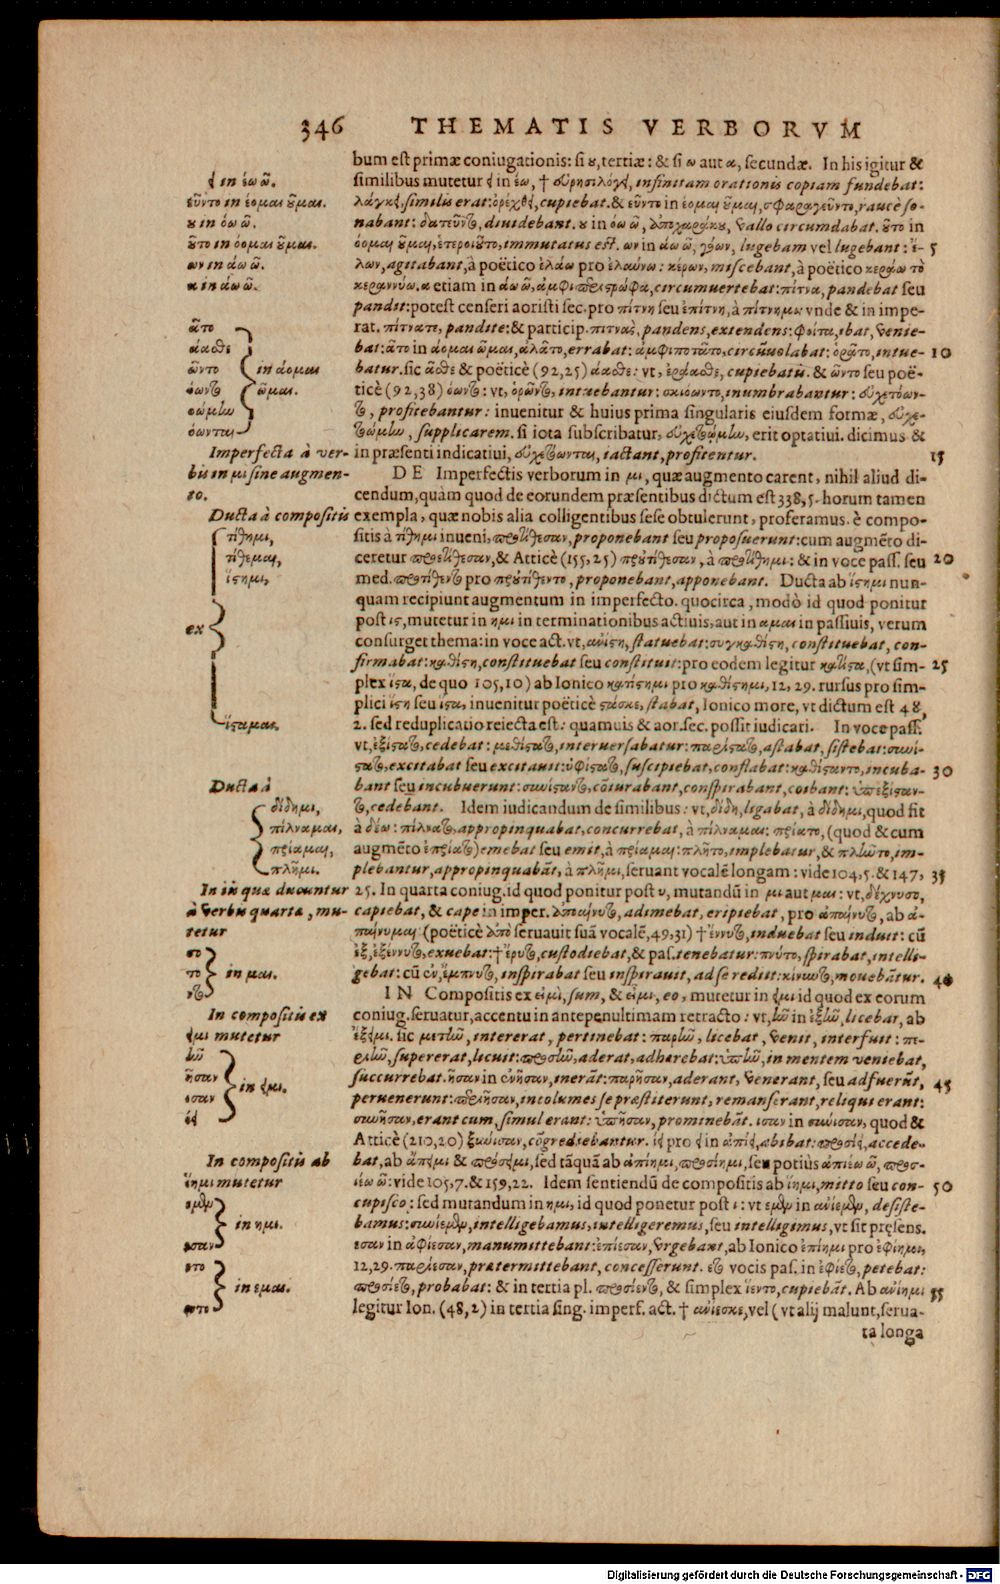 346 THEMATIS VERBORVM
bum est primæ coniugationis: si ȣ, tertiæ: & si ω aut α, secundæ. In his igitur &
similibus mutetur ει in έω, † infinitam orationis copiam fundebat:
similis erat: cupiebat. & εῦντο in έομαι ȣ͂μαι, raucè so-
nabant: diuidebant. ȣ in όω ῶ, vallo circumdabat. ȣ͂το in
όομαι ȣ͂μαι, immutatus est. ων in άω ῶ, γόων, lugebam vel lugebant: ἔ-
5
λων, agitabant, à poëtico ἐλάω pro ἐλαύνω: κέρων, miscebant, à poëtico κεράω τὸ
κεραννύω. α etiam in άω ῶ, circumuertebat: πίτνα, pandebat seu
pandit: potest censeri aoristi sec. pro πίτνη seu ἐπίτνη, à πίτνημι: vnde & in impe-
rat. πίτνατε, pandite: & particip. πιτνας, pandens, extendens: φοίτα, ibat, venie-
bat: ᾶτο in άομαι ῶμαι, ἀλᾶτο, errabat: ἀμφιποτᾶτο, circūuolabat: ὁρᾶτο, intue-
10
batur. sic ᾶσθε & poëticè (92, 25) άασθε: vt, ἐράασθε, cupiebatis. & ῶντο seu poë-
ticè (92, 38) όωντο: vt, ὁρῶντο, intuebantur: σκιόωντο, inumbrabantur: εὐχετόων-
το, profitebantur: inuenitur & huius prima singularis eiusdem formæ, εὐχε-
supplicarem. si iota subscribatur, erit optatiui. dicimus &
in præsenti indicatiui, iactant, profitentur.
15
DE Imperfectis verborum in μι, quæ augmento carent, nihil aliud di-
cendum, quàm quod de eorundem præsentibus dictum est 338, 5. horum tamen
exempla, quæ nobis alia colligentibus sese obtulerunt, proferamus. è compo-
sitis à τίθημι inueni, προτίθεσαν, proponebant seu proposuerunt: cum augmēto di-
ceretur προετίθεσαν, & Atticè (155, 25) προὐτίθεσαν, à προτίθημι: & in voce pass. seu
20
med. προτίθεντο pro προὐτίθεντο, proponebant, apponebant. Ducta ab ἵστημι nun-
quam recipiunt augmentum in imperfecto. quocirca, modò id quod ponitur
post ιστ, mutetur in ημι in terminationibus actiuis, aut in αμαι in passiuis, verum
consurget thema: in voce act. vt, ἀνίστη, statuebat: συγκαθίστη, constituebat, con-
firmabat: καθίστη, constituebat seu constituit: pro eodem legitur κατίστα, (vt sim-
25
plex ἵστα, de quo 105, 10) ab Ionico κατίστημι pro καθίστημι, 12, 29. rursus pro sim-
plici ἵστη seu ἵστα, inuenitur poëticè στάσκε, stabat, Ionico more, vt dictum est 48,
2. sed reduplicatio reiecta est: quamuis & aor. sec. possit iudicari. In voce pass.
vt, ἐξίστατο, cedebat: μεθίστατο, interuersabatur: παρίστατο, astabat, sistebat: συνί-
στατο, excitabat seu excitauit: ὑφίστατο, suscipiebat, conflabat: καθίσταντο, incuba-
30
bant seu incubuerunt: συνίσταντο, cōiurabant, conspirabant, coibant: ὑπεξίσταν-
το, cedebant. Idem iudicandum de similibus: vt, δίδη, ligabat, à δίδημι, quod fit
à δέω: πίλνατο, appropinquabat, concurrebat, à πίλναμαι: πρίατο, (quod & cum
augmēto ἐπρίατο) emebat seu emit, à πρίαμαι: πλῆτο, implebatur, & πλῶτο, im-
plebantur, appropinquabāt, à πλῆμι, seruant vocalē longam: vide 104, 5. & 147,
35
25. In quarta coniug. id quod ponitur post υ, mutandū in μι aut μαι: vt, δέχνυσο,
capiebat, & cape in imper. ἀποαίνυτο, adimebat, eripiebat, pro ἀπαίνυτο, ab ἀ-
παίνυμαι (poëticè ἀπὸ seruauit suā vocalē, 49, 31) † ἔννυτο, induebat seu induit: cū
ἐξ, ἐξέννυτο, exuebat: † ἔρυτο, custodiebat, & pas. tenebatur: πνύτο, spirabat, intelli-
gebat: cū ἐν, ἔμπνυτο, inspirabat seu inspirauit, ad se rediit: κίνυντο, mouebātur.
40
IN Compositis ex εἰμὶ, sum, & εἶμι, eo, mutetur in ειμι id quod ex eorum
coniug. seruatur, accentu in antepenultimam retracto: vt, ῆν in ἐξῆν, licebat, ab
ἔξειμι. sic μετῆν, intererat, pertinebat: παρῆν, licebat, venit, interfuit: πε-
ριῆν, supererat, licuit: προσῆν, aderat, adhærebat: ὑπῆν, in mentem veniebat,
succurrebat. ῆσαν in ἐνῆσαν, inerāt: παρῆσαν, aderant, venerant, seu adfuerūt,
45
peruenerunt: περιῆσαν, incolumes se præstiterunt, remanserant, reliqui erant:
συνῆσαν, erant cum, simul erant: ὑπῆσαν, prominebāt. ισαν in συνισαν, quod &
Atticè (210, 20) ξυνισαν, cōgrediebantur. ιει pro ει in ἀπίει, abibat: προσίει, accede-
bat, ab ἄπειμι & πρόσειμι, sed tāquā ab ἀπίημι, προσίημι, seu potiùs ἀπιέω ῶ, προσ-
ιέω ῶ: vide 105, 7. & 159, 22. Idem sentiendū de compositis ab ἵημι, mitto seu con-
50
cupisco: sed mutandum in ημι, id quod ponetur post ι: vt εμεν in ἀνίεμεν, desiste-
bamus: συνίεμεν, intelligebamus, intelligeremus, seu intelligimus, vt sit præsens.
εσαν in ἀφίεσαν, manumittebant: ἐπίεσαν, vrgebant, ab Ionico ἐπίημι pro ἐφίημι,
12, 29. παρίεσαν, prætermittebant, concesserunt. ετο vocis pas. in ἐφίετο, petebat:
προσίετο, probabat: & in tertia pl. προσίεντο, & simplex ἵεντο, cupiebāt. Ab ἀνίημι
55
legitur Ion. (48, 2) in tertia sing. imperf. act. † ἀνίεσκε, vel (vt alij malunt, serua-
ta longa
ει in έω ῶ.
εῦντο in έομαι ȣ͂μαι.
ȣ in όω ῶ.
ȣ͂το in όομαι ȣ͂μαι.
ων in άω ῶ.
α in άω ῶ.
ᾶτο
άασθε
ῶντο
όωντο
όωνται
in άομαι
ῶμαι.
Imperfecta à ver-
bis in μι sine augmen-
to.
Ducta à compositis
τίθημι,
τίθεμαι,
ἵστημι,
ex
ἵσταμαι.
Ducta à
δίδημι,
πίλναμαι,
πρίαμαι,
πλῆμι.
In iis quæ ducuntur
à verbis quartæ, mu-
tetur
σο
το
ντο
in μαι.
In compositis ex
ειμι mutetur
ῆν
ῆσαν
ισαν
ιει
in ειμι.
In compositis ab
ἵημι mutetur
εμεν
εσαν
in ημι.
ετο
εντο
in εμαι.
Digitalisierung gefördert durch die Deutsche Forschungsgemeinschaft - DFG